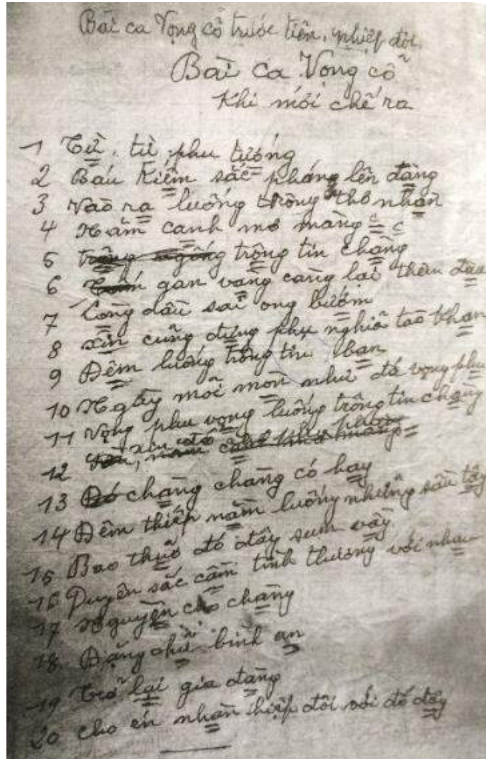 Bài ca Vọng cổ trước tiên, nhiếp đôi
Bài ca Vọng cổ
Khi mới chế ra
1 Từ, từ phu tướng
2 Báu Kiếm sắc pháng lên đàng
3 Vào ra luống trông tho nhạn
4 Năm canh mơ màng
5 trông ngóng trông tin chàng
6 gan vàng càng lại thêm đau
7 Lòng dầu sai ong bướm
8 xin cũng đừng phụ nghĩa tao khan
9 Đêm luống trông tin bạn
10 Ngày mỏi mòn như đá vọng phu
11 Vọng phu vọng luống trông tin chàng
12
13 chàng chàng có hay
14 Đêm thiếp nằm luống những sầu tây
15 Bao thuở đó đây sum vầy
16 Duyên sắc cầm tình thương với nhau
17 Nguyện cho chàng
18 Đặng chữ bình an
19 Trở lại gia đàng
20 cho én nhạn hiệp đôi với đó đây